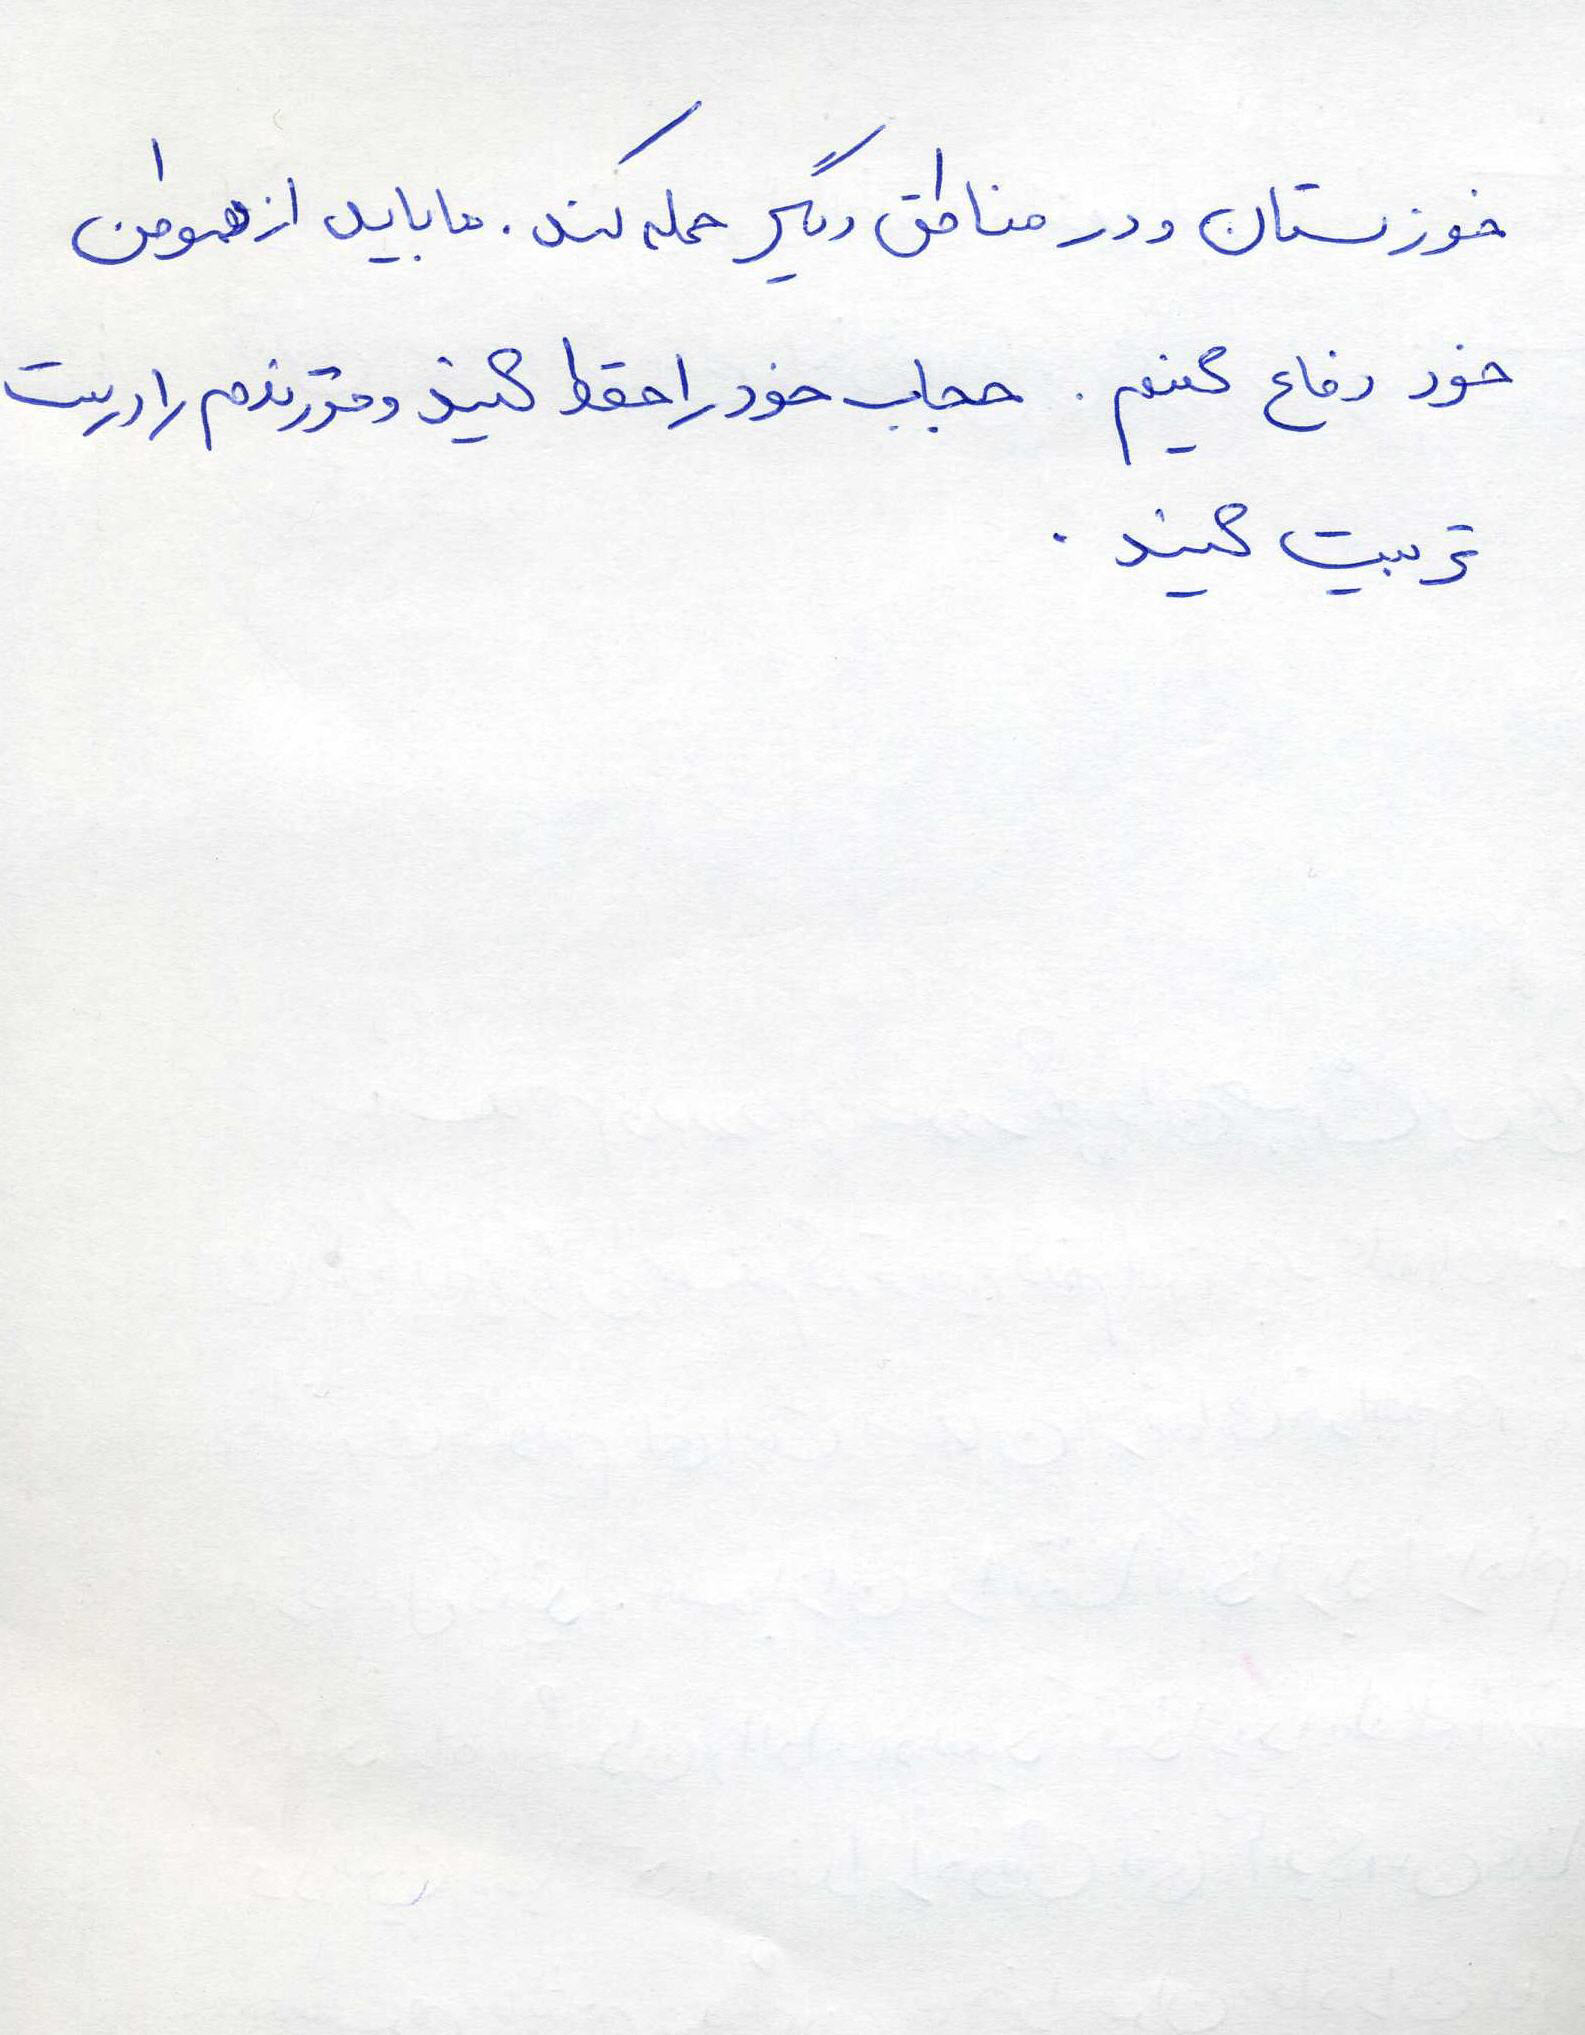 خوزستان و در مناطق دیگر حمله کند. ما باید از هموطن
خود دفاع کنیم. حجاب خود را حفظ کنید و فرزندم را درست
تربیت کنید.